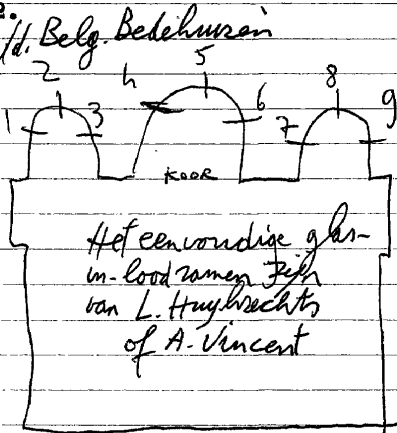 2.
i/d. Belg. Bedehuizen
1 2 3 4 5 6 7 8 9
KOOR
Het eenvoudige glas-
in-loodramen zijn
van L. Huybrechts
of A. Vincent